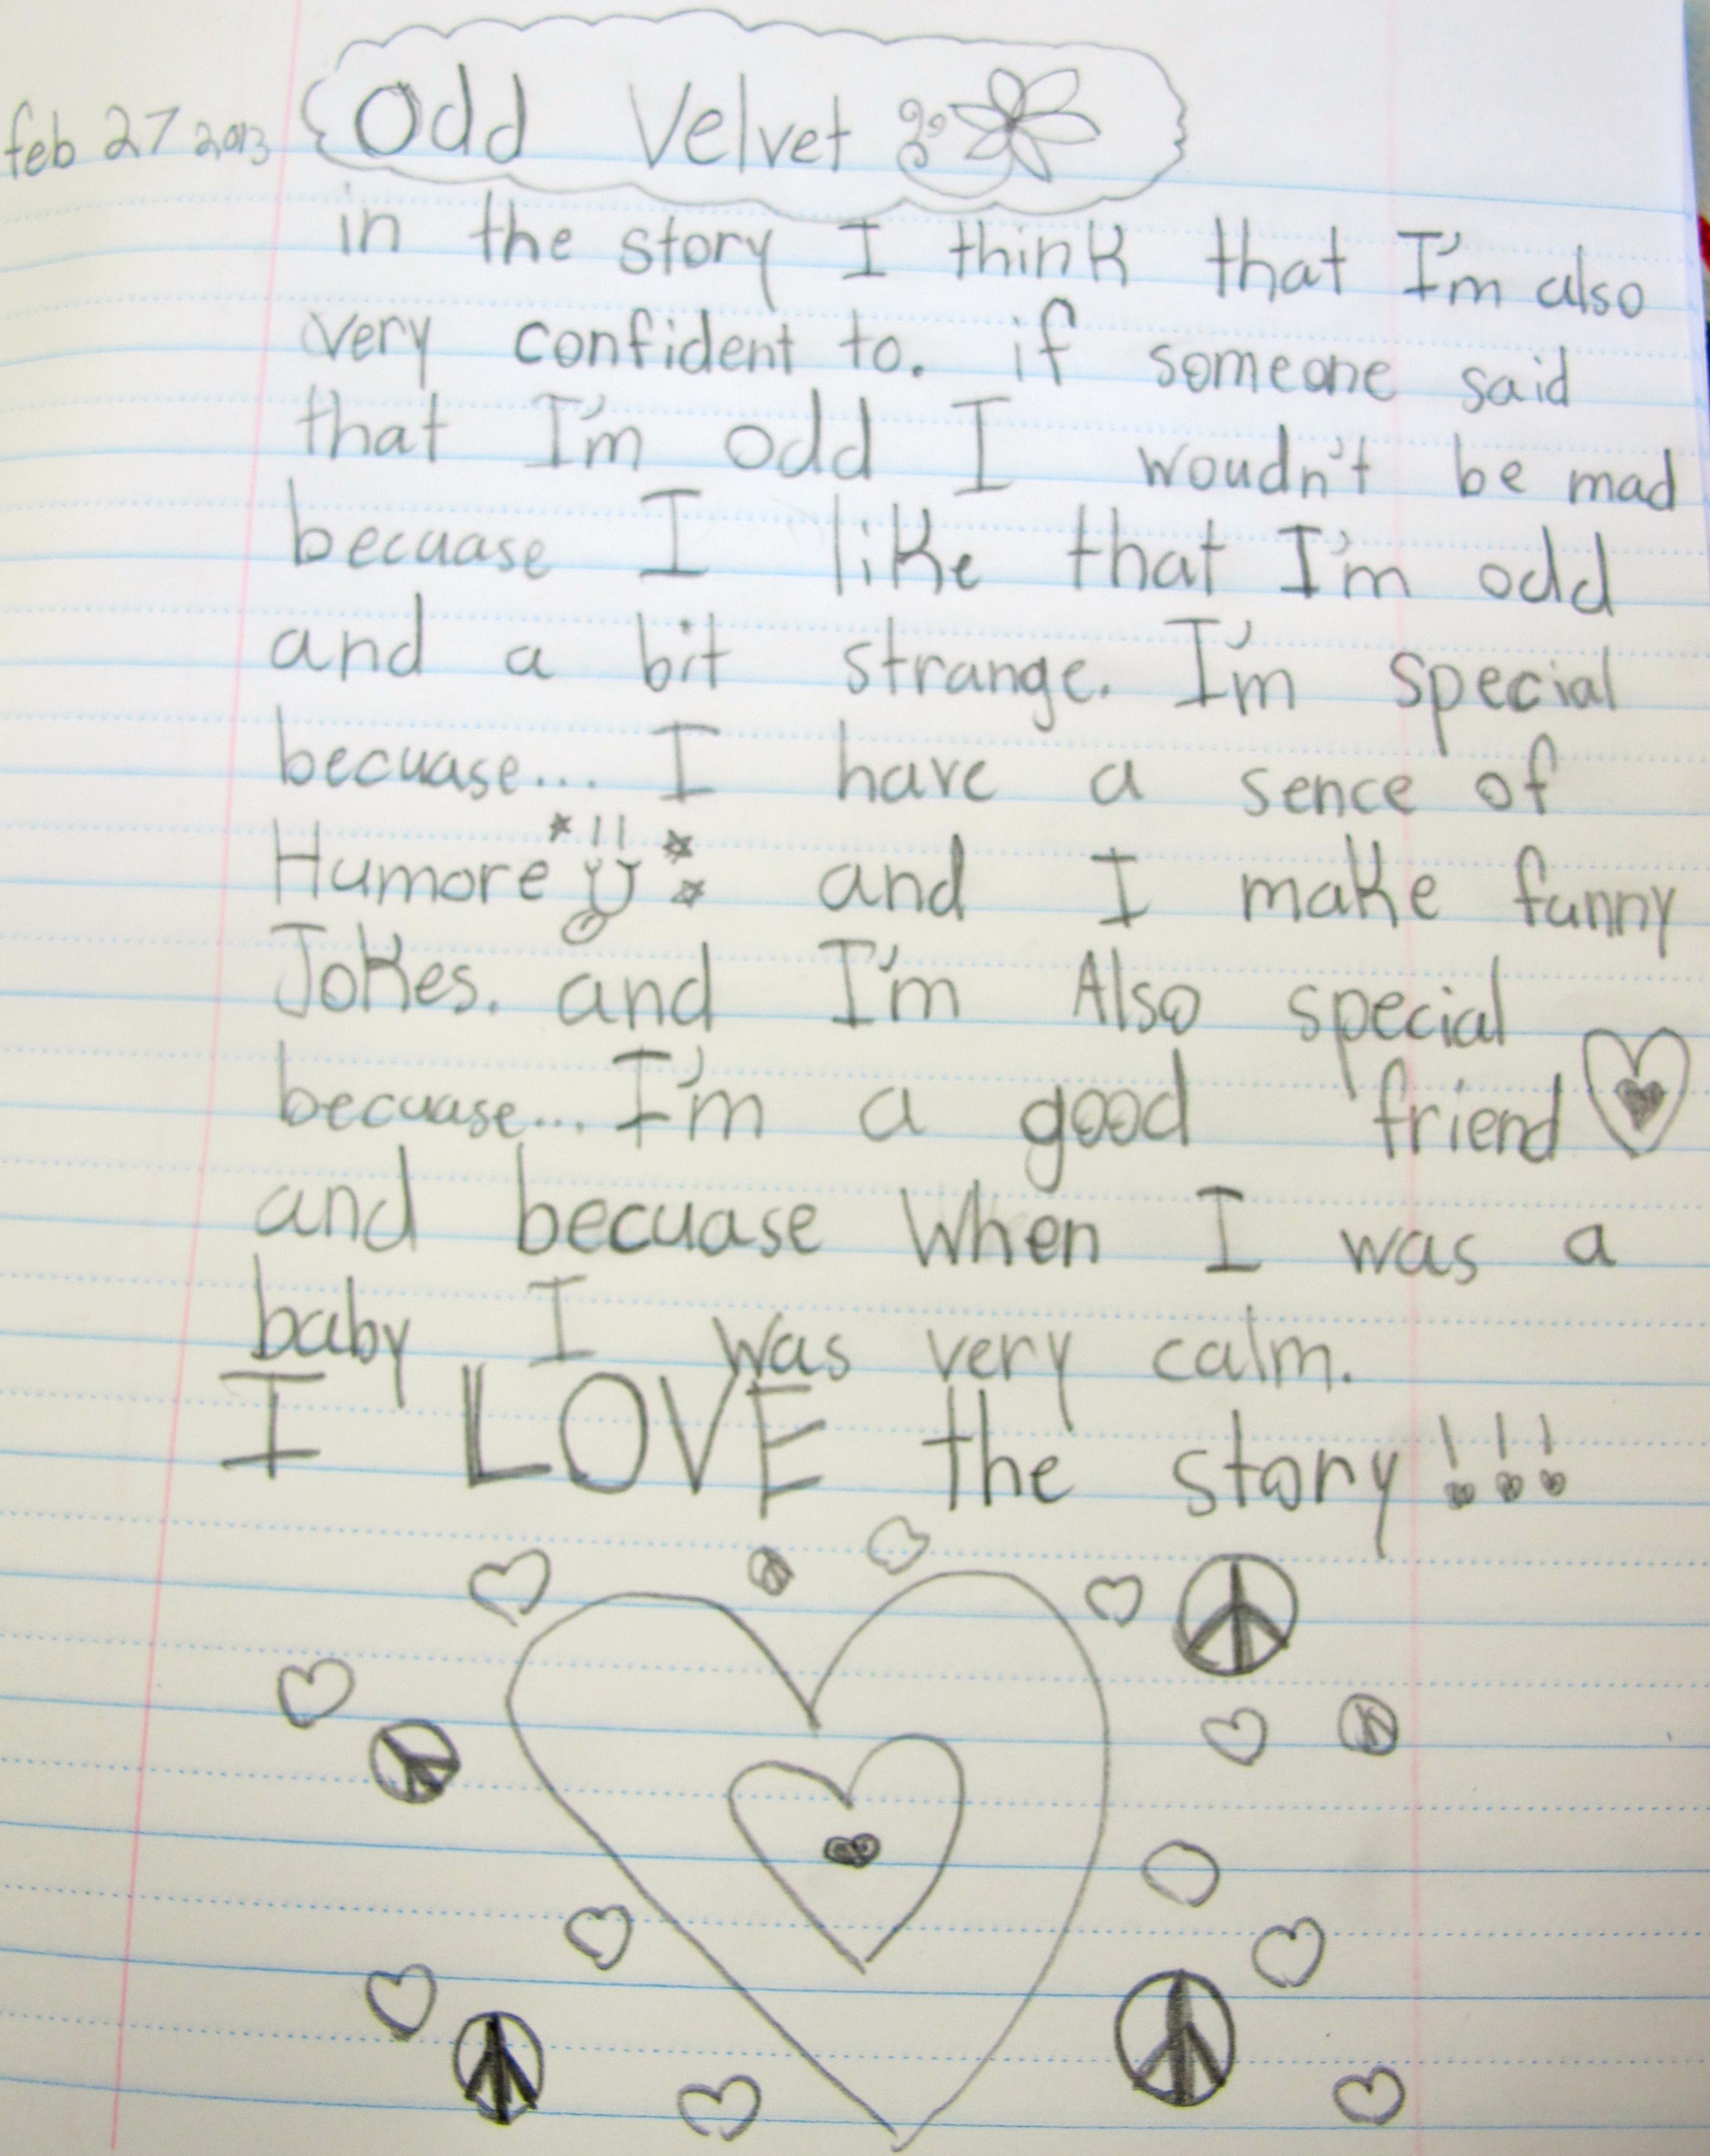 feb 27 2013 Odd Velvet
in the story I think that I'm also
very confident to. if someone said
that I'm odd I woudn't be mad
becuase I like that I'm odd
and a bit strange. I'm special
becuase... I have a sence of
Humore and I make funny
Jokes. and I'm Also special
becuase... I'm a good friend
and becuase When I was a
baby I was very calm.
I LOVE the story!!!